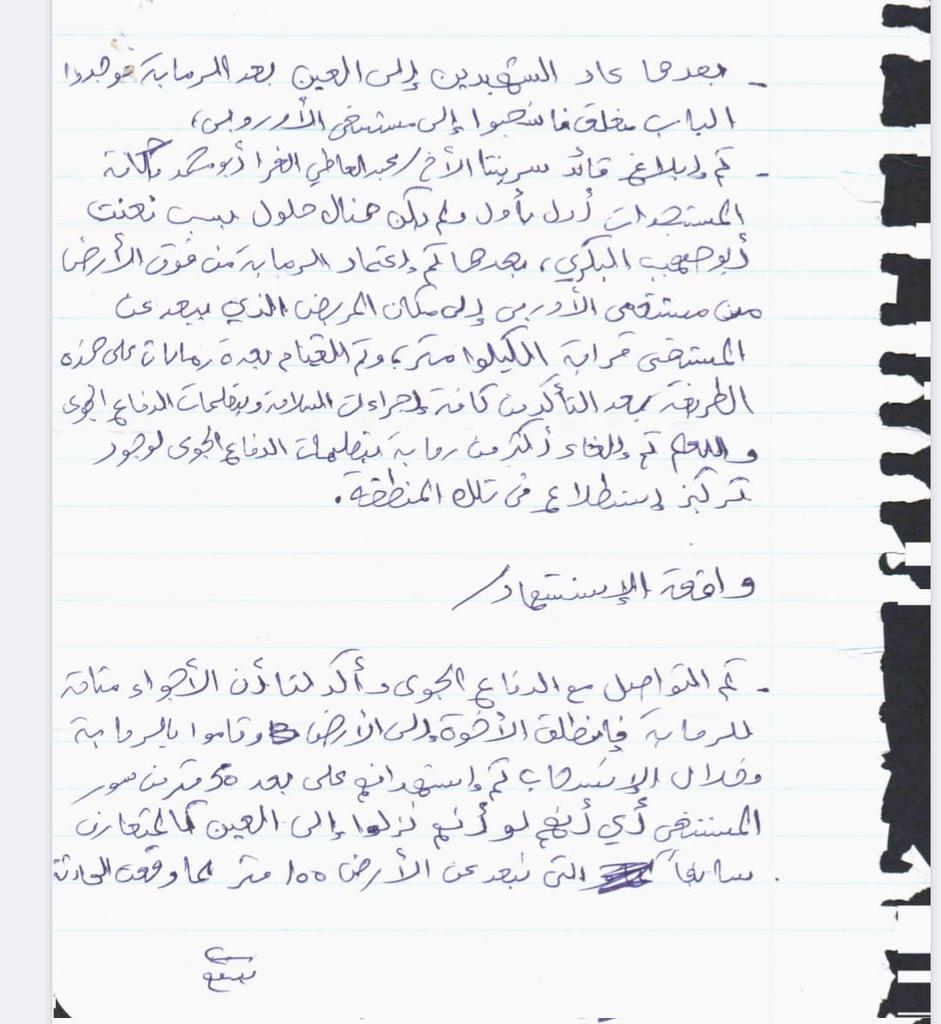 - بعدها عاد الشهيدين إلى العين بعد الرماية فوجدوا
الباب مغلق فانسحبوا إلى مستشفى الأوروبي،
- تم إبلاغ قائد سريتنا الأخ/ عبد العاطي الفرا أبو محمد بكافة
المستجدات أول بأول ولم يكن هنال حلول بسبب تعنت
أبو صهيب البكري، بعدها تم إعتماد الرماية من فوق الأرض
من مستشفى الأوربي إلى مكان المربض الذي يبعد عن
المستشفى قرابة الكيلوا متر، وتم القيام بعدة رمايات على هذه
الطريقة بعد التأكد من كافة إجراءات السلامة وتعليمات الدفاع الجوى
و تم إلغاء أكثر من رماية بتعليمات الدفاع الجوى لوجود
تركيز إستطلاع في تلك المنطقة.
واقعة الإستشهاد/
- تم التواصل مع الدفاع الجوى وأكد لنا أن الأجواء متاحة
للرماية فإنطلق الأخوة إلى الأرض وقاموا بالرماية
وخلال الإنسحاب تم إستهدافهم على بعد 50 متر من سور
المستشفى أي أنهم لو أنهم نزلوا إلى العين كالمتعارف
سابقاً التي تبعد عن الأرض 100 متر لما وقعت الحادثة.
يتبع